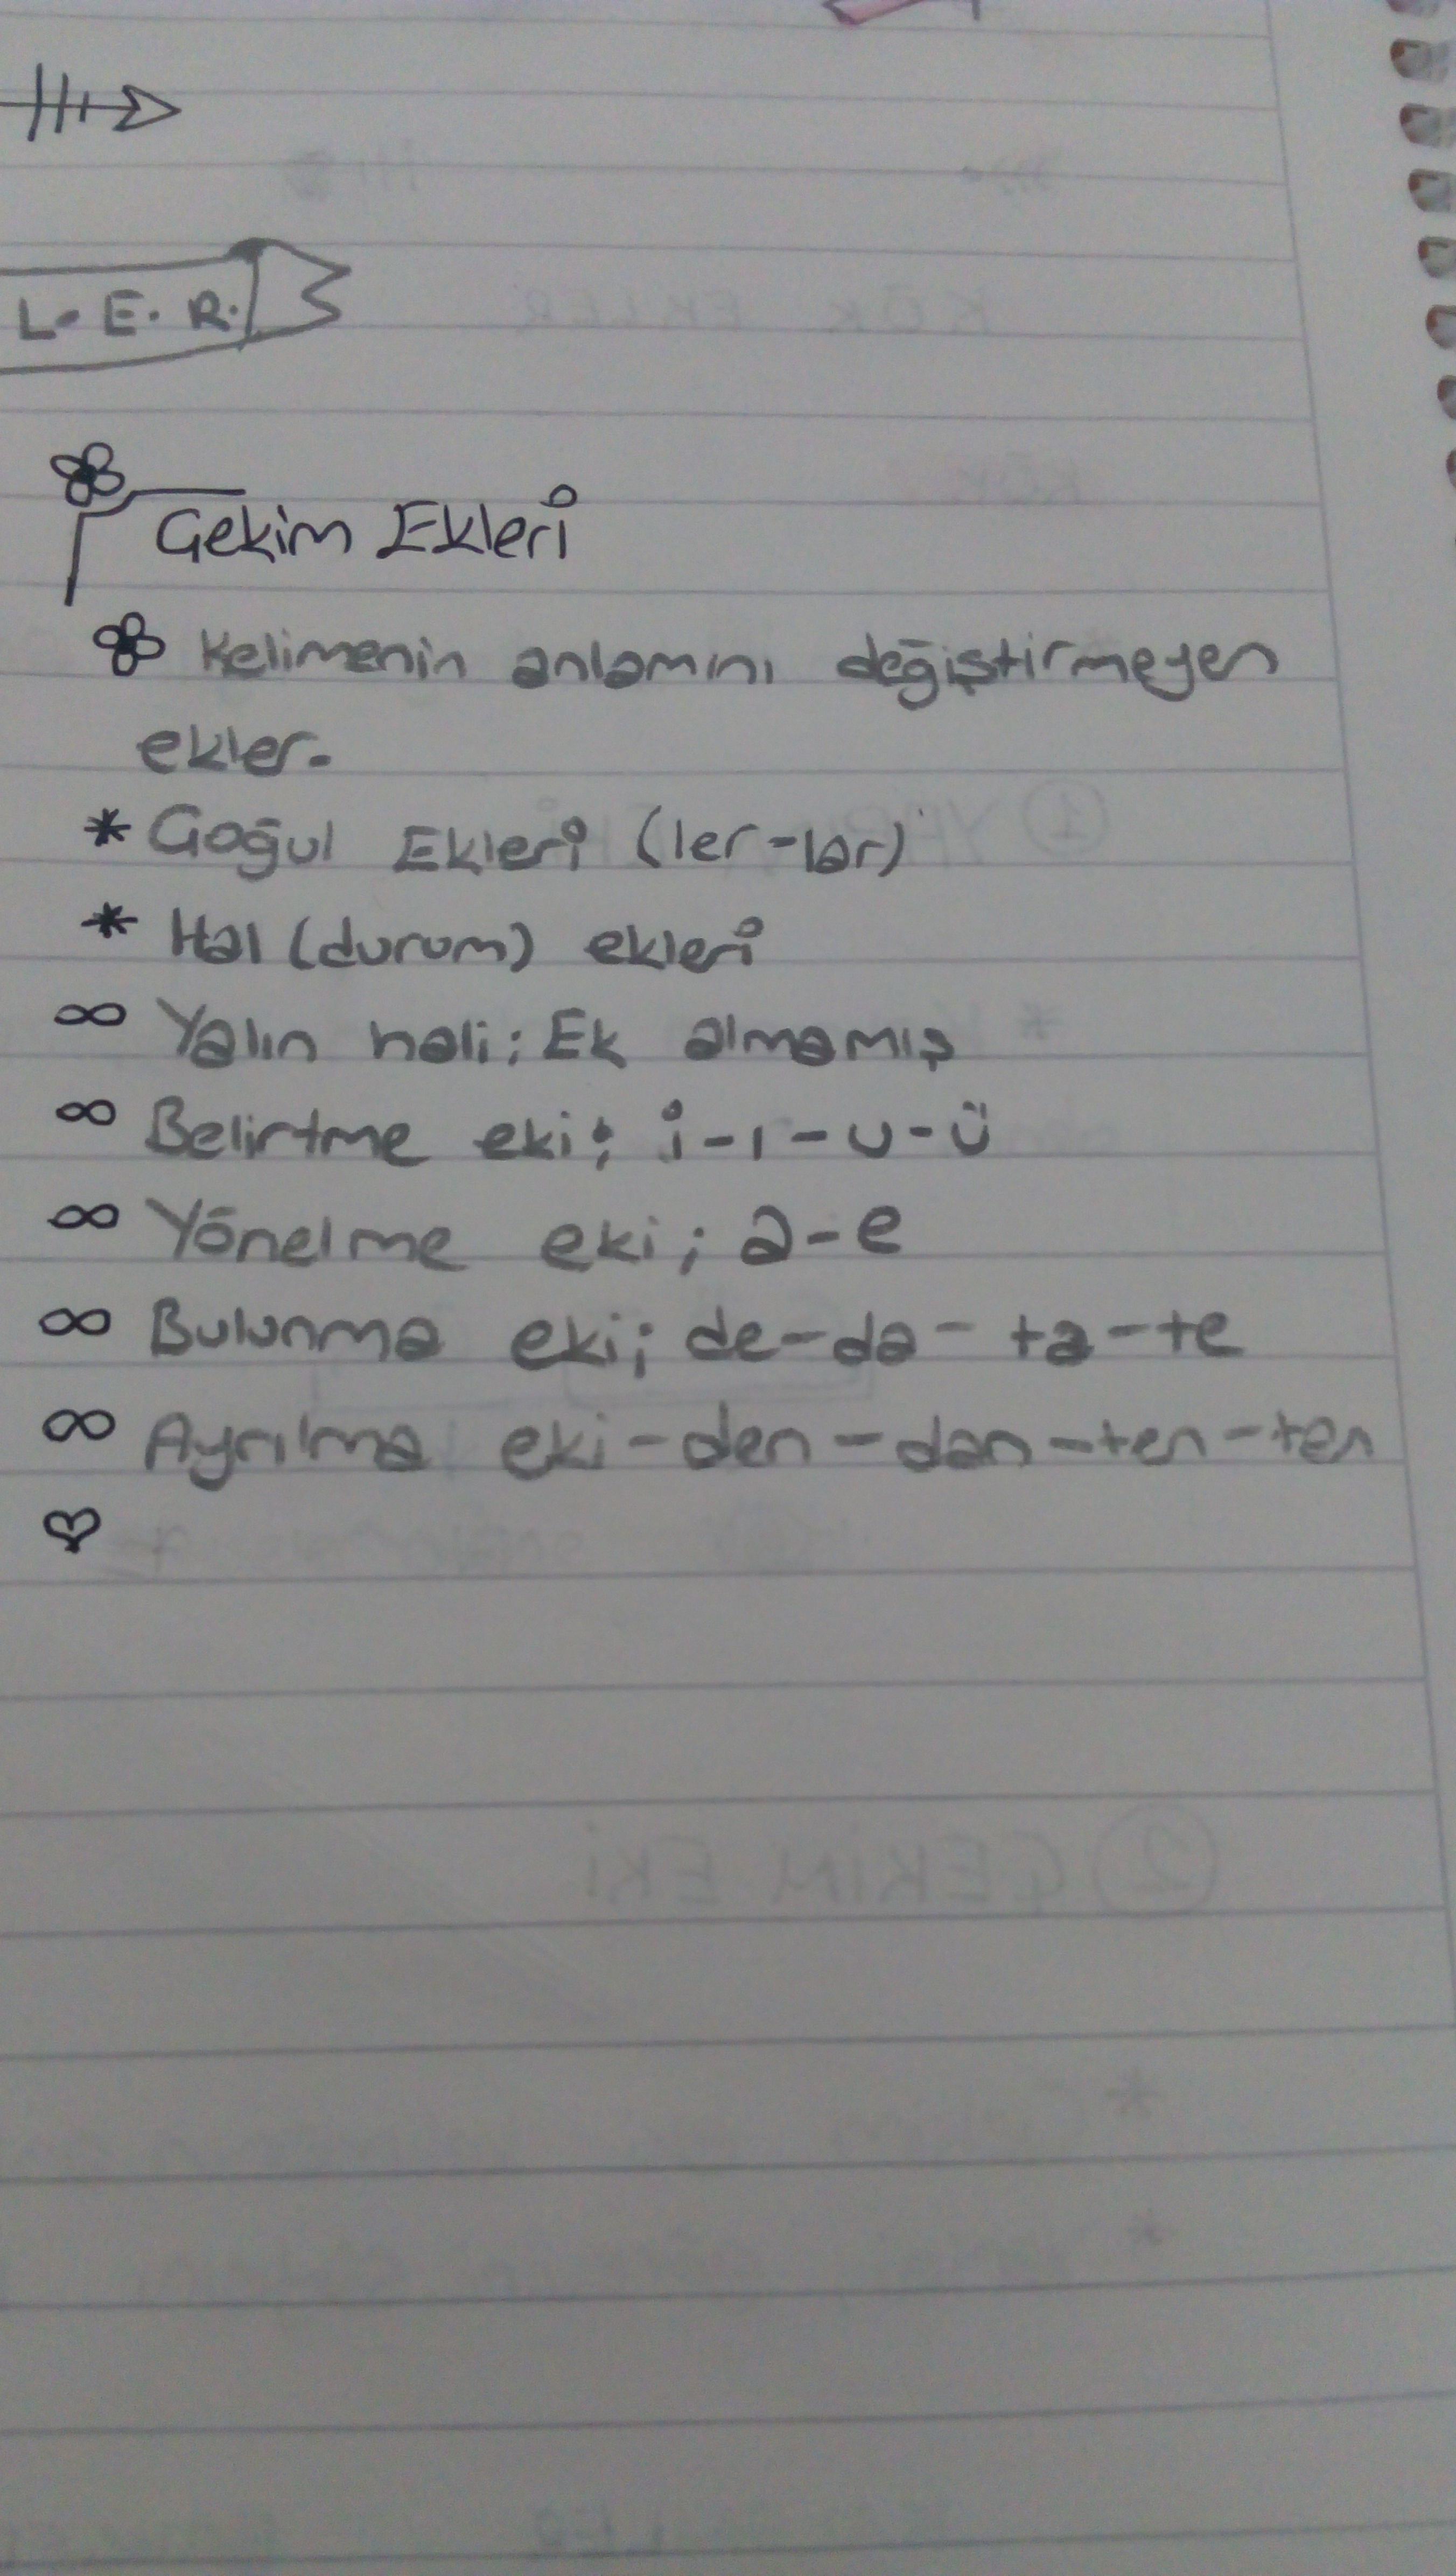 L. E. R.
Çekim Ekleri
Kelimenin anlamını değiştirmeyen
ekler.
* Çoğul Ekleri (ler-lar)
* Hal (durum) ekleri
∞ Yalın hali; Ek almamış
∞ Belirtme eki; i-ı-u-ü
∞ Yönelme eki; a-e
∞ Bulunma eki; de-da- ta-te
∞ Ayrılma eki-den-dan-ten-ten